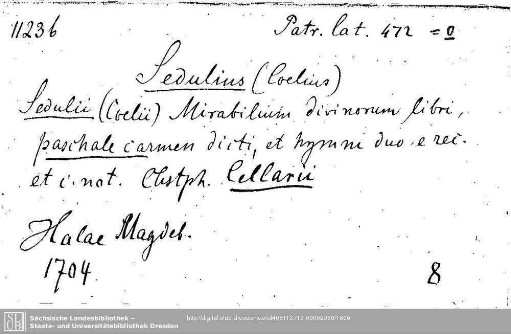 11236 Patr. lat. 472 = 0
Sedulius (Coelius)
Sedulii (Coelii) Mirabilium divinorum libri,
paschale carmen dicti, et hymni duo e rec.
et c. not. Chstph. Cellarii
Halae Magdeb.
1704 8
Sächsische Landesbibliothek –
Staats- und Universitätsbibliothek Dresden